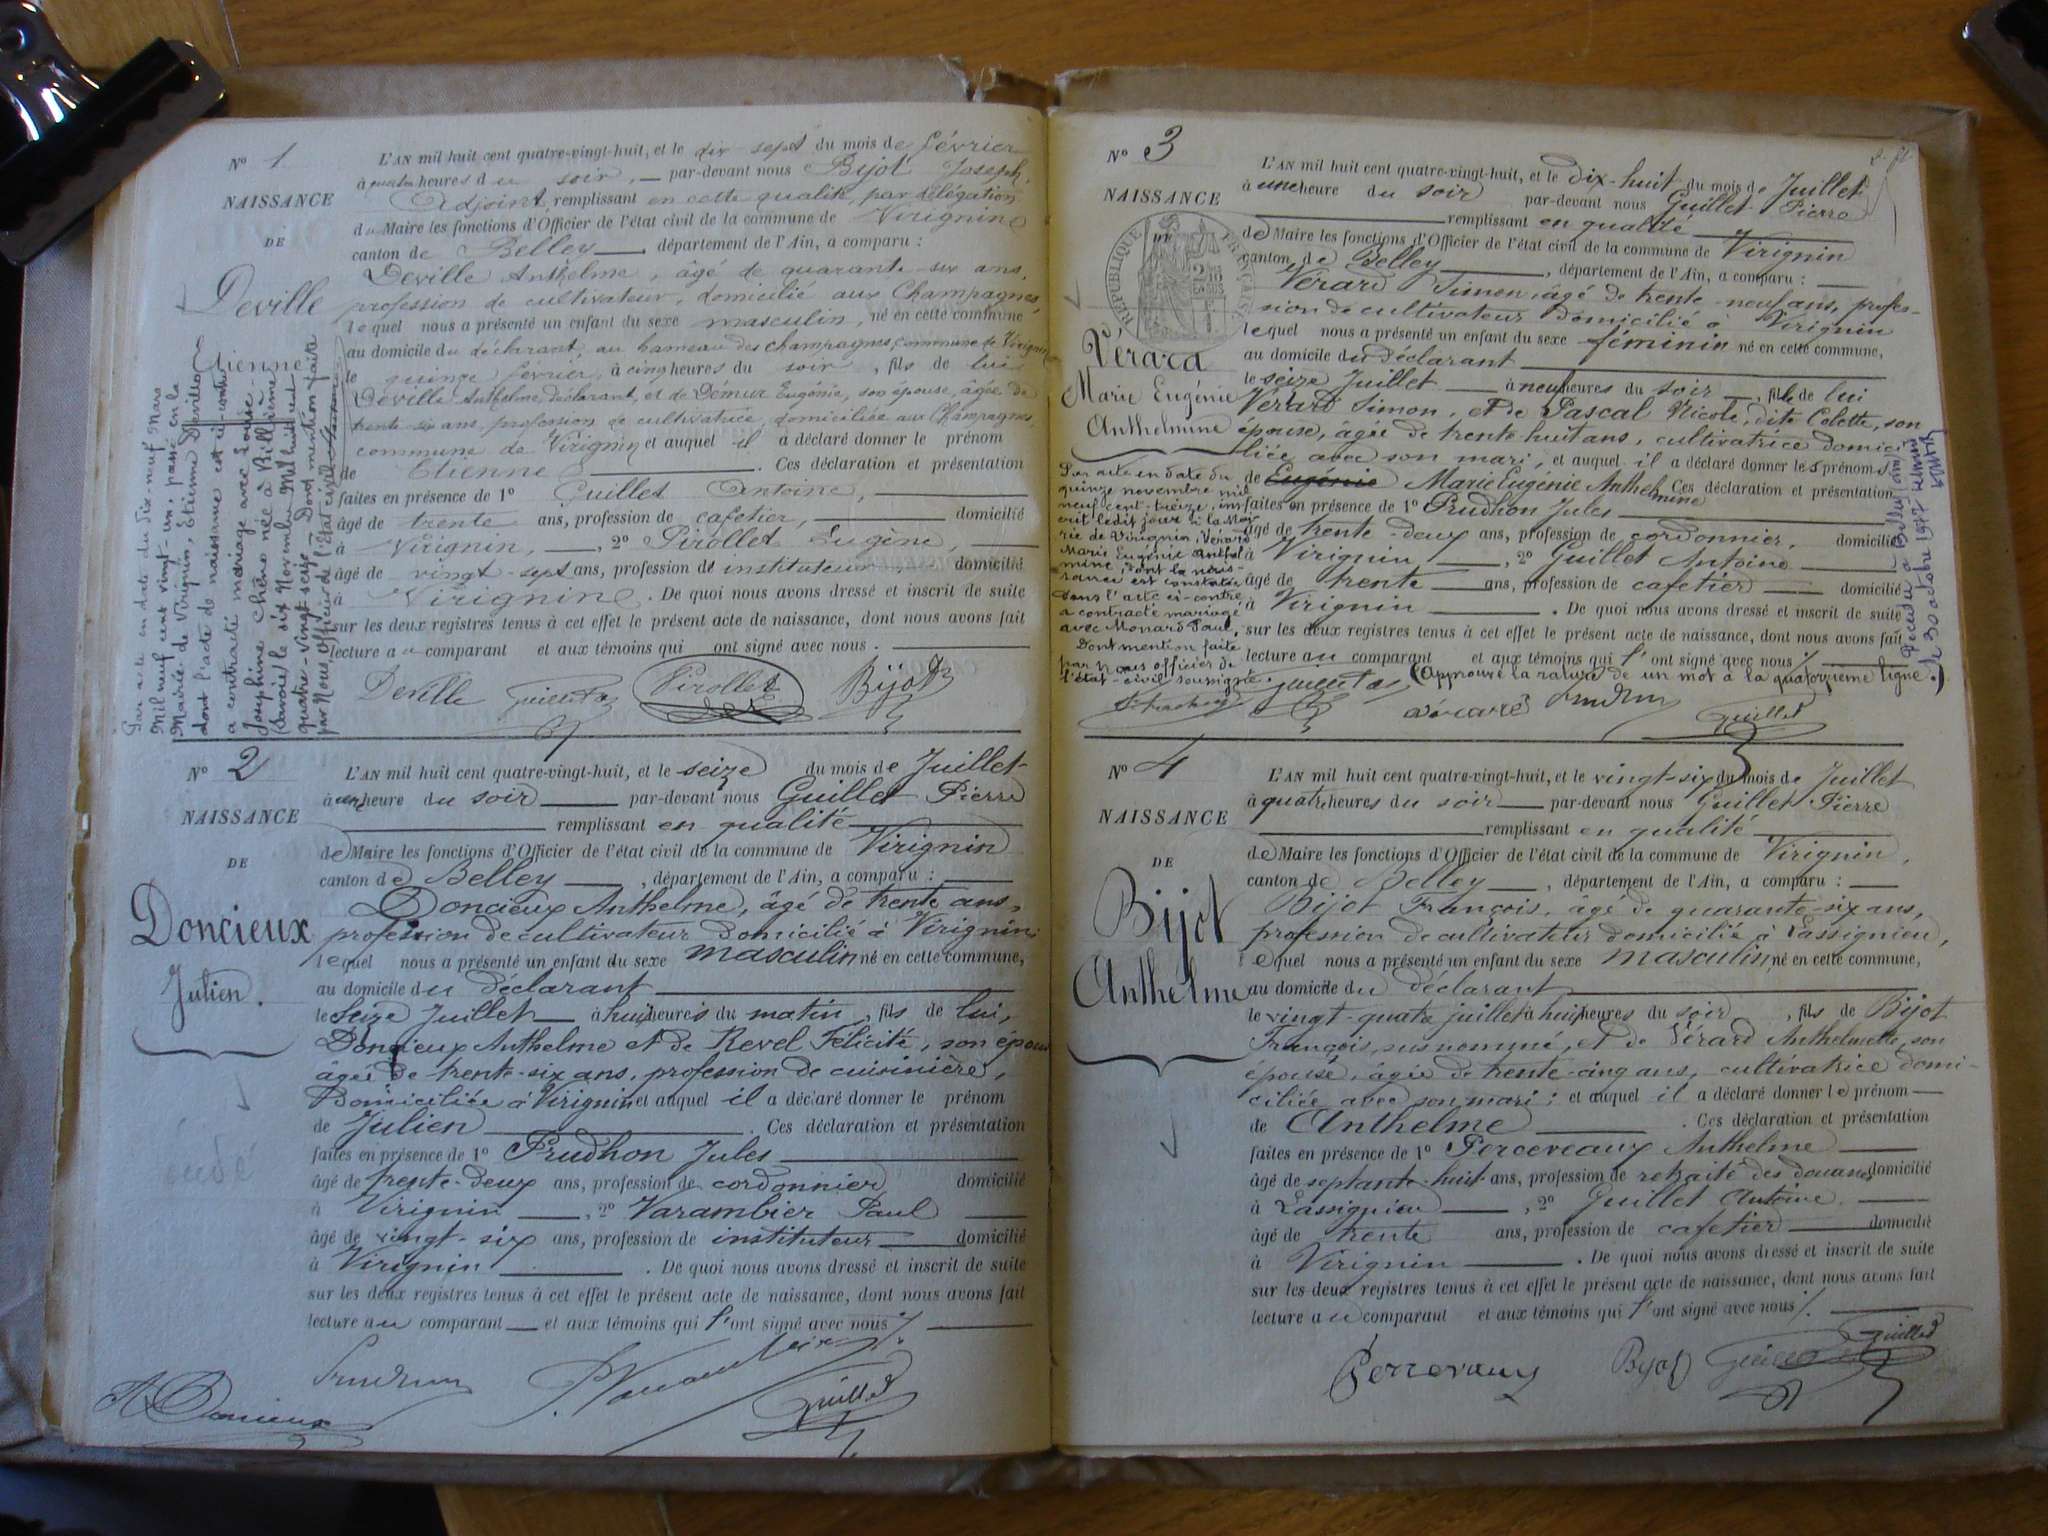 N° 1
NAISSANCE
DE
Deville
Etienne
Par acte en date du dix-neuf Mars
Mil neuf cent vingt-un, passé en la
Mairie de Virignin, Etienne Deville
dont l'acte de naissance est ci-contre
a contracté mariage avec Louise-
Joséphine Chêne née à Billième
(Savoie) le six Novembre Mil huit cent
quatre-vingt-seize. Dont mention faite
par Nous, Officier de l'état civil
L'AN mil huit cent quatre-vingt-huit, et le dix-sept du mois de février
à quatre heures du soir, par-devant nous Bijot Joseph,
Adjoint, remplissant en cette qualité par délégation
du Maire les fonctions d'Officier de l'état civil de la commune de Virignin
canton de Belley, département de l'Ain, a comparu :
Deville Anthelme, âgé de quarante-six ans,
profession de cultivateur, domicilié aux Champagnes,
lequel nous a présenté un enfant du sexe masculin, né en cette commune
au domicile du déclarant, au hameau des Champagnes, commune de Virignin
le quinze février, à cinq heures du soir, fils de lui
Deville Anthelme déclarant, et de Démur Eugénie, son épouse, âgée de
trente-six ans, profession de cultivatrice, domiciliée aux Champagnes
commune de Virignin et auquel il a déclaré donner le prénom
de Etienne. Ces déclaration et présentation
faites en présence de 1° Guillet Antoine,
âgé de trente ans, profession de cafetier, domicilié
à Virignin, 2° Pirollet Eugène,
âgé de vingt-sept ans, profession de instituteur domicilié
à Virignin. De quoi nous avons dressé et inscrit de suite
sur les deux registres tenus à cet effet le présent acte de naissance, dont nous avons fait
lecture au comparant et aux témoins qui ont signé avec nous.
Deville Pirollet Bijot
N° 2
NAISSANCE
DE
Doncieux
Julien.
L'AN mil huit cent quatre-vingt-huit, et le seize du mois de Juillet
à une heure du soir par-devant nous Guillet Pierre
remplissant en qualité
de Maire les fonctions d'Officier de l'état civil de la commune de Virignin
canton de Belley, département de l'Ain, a comparu :
Doncieux Anthelme, âgé de trente ans,
profession de cultivateur domicilié à Virignin,
lequel nous a présenté un enfant du sexe masculin né en cette commune,
au domicile du déclarant
le seize Juillet à huit heures du matin, fils de lui,
Doncieux Anthelme et de Revel Félicité, son épouse
âgée de trente-six ans, profession de cuisinière,
Domiciliée à Virignin et auquel il a déclaré donner le prénom
de Julien. Ces déclaration et présentation
faites en présence de 1° Prudhon Jules
âgé de trente-deux ans, profession de cordonnier domicilié
à Virignin, 2° Varambier Paul
âgé de vingt-six ans, profession de instituteur domicilié
à Virignin. De quoi nous avons dressé et inscrit de suite
sur les deux registres tenus à cet effet le présent acte de naissance, dont nous avons fait
lecture au comparant et aux témoins qui l'ont signé avec nous ./.
Prudhon
A Doncieux Guillet
N° 3
NAISSANCE
DE
RÉPUBLIQUE FRANÇAISE
Vérard
Marie Eugénie
Anthelmine
Par acte en date du
quinze novembre mil
neuf cent treize, ins
crit ledit jour à la Mai
rie de Virignin, Vérard
Marie Eugénie Anthel
mine, dont la nais-
sance est constatée
dans l'acte ci-contre
a contracté mariage
avec Monard Paul,
Dont mention faite
par nous officier de
l'état-civil soussigné.
L'AN mil huit cent quatre-vingt-huit, et le dix-huit du mois de Juillet
à une heure du soir par-devant nous Guillet Pierre
remplissant en qualité
de Maire les fonctions d'Officier de l'état civil de la commune de Virignin
canton de Belley, département de l'Ain, a comparu :
Vérard Simon, âgé de trente-neuf ans, profes-
sion de cultivateur domicilié à Virignin
lequel nous a présenté un enfant du sexe féminin né en cette commune,
au domicile du déclarant
le seize Juillet à neuf heures du soir, fille de lui
Vérard Simon, et de Pascal Nicole, dite Colette, son
épouse, âgée de trente huit ans, cultivatrice domici
liée avec son mari, et auquel il a déclaré donner les prénoms
de Eugénie Marie Eugénie Anthelmine Ces déclaration et présentation
faites en présence de 1° Prudhon Jules
âgé de trente-deux ans, profession de cordonnier, domicilié
à Virignin, 2° Guillet Antoine
âgé de trente ans, profession de cafetier domicilié
à Virignin. De quoi nous avons dressé et inscrit de suite
sur les deux registres tenus à cet effet le présent acte de naissance, dont nous avons fait
lecture au comparant et aux témoins qui l'ont signé avec nous ./.
(Approuvé la rature de un mot à la quatorzième ligne.)
Décédée à Belley (Ain)
le 30 octobre 1972
Vérard Prudhon Guillet
N° 4
NAISSANCE
DE
Bijot
Anthelme
L'AN mil huit cent quatre-vingt-huit, et le vingt-six du mois de Juillet
à quatre heures du soir par-devant nous Guillet Pierre
remplissant en qualité
de Maire les fonctions d'Officier de l'état civil de la commune de Virignin,
canton de Belley, département de l'Ain, a comparu :
Bijot François, âgé de quarante-six ans,
profession de cultivateur domicilié à Lassignieu,
lequel nous a présenté un enfant du sexe masculin, né en cette commune,
au domicile du déclarant
le vingt-quatre juillet à huit heures du soir, fils de Bijot
François, susnommé, et de Vérard Anthelmette, son
épouse, âgée de trente-cinq ans, cultivatrice domi-
ciliée avec son mari ; et auquel il a déclaré donner le prénom
de Anthelme. Ces déclaration et présentation
faites en présence de 1° Perceveaux Anthelme
âgé de septante-huit ans, profession de retraité des douanes domicilié
à Lassignieu, 2° Guillet Antoine
âgé de trente ans, profession de cafetier domicilié
à Virignin. De quoi nous avons dressé et inscrit de suite
sur les deux registres tenus à cet effet le présent acte de naissance, dont nous avons fait
lecture au comparant et aux témoins qui l'ont signé avec nous ./.
Bijot Guillet